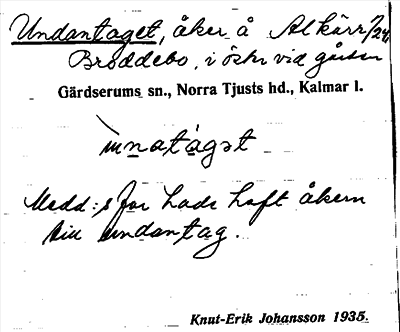 Undantaget, åker å Alkärr 1/24,
Broddebo, i öster vid gården
Gärdserums sn., Norra Tjusts hd., Kalmar l.
ùnatàgət
Medd:s far hade haft åkern
till undantag.
Knut-Erik Johansson 1935.